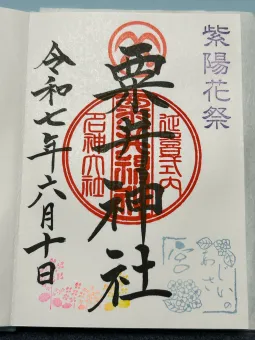 紫陽花祭
延喜式内
粟井神社
名神大社
令和七年六月十日
あじさいの宮